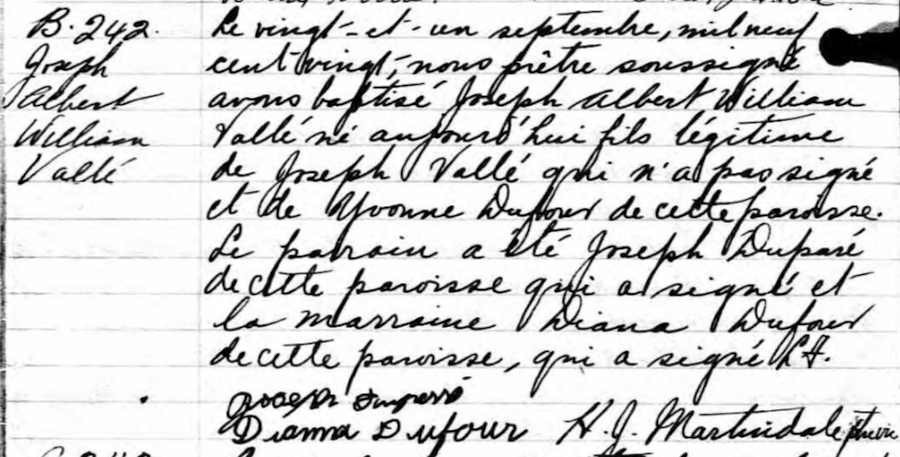 B. 242.
Joseph
Albert
William
Vallé
Le vingt-et-un septembre, mil neuf
cent vingt, nous prêtre soussigné
avons baptisé Joseph Albert William
Vallé né aujourd'hui fils légitime
de Joseph Vallé qui n'a pas signé
et de Yvonne Dufour de cette paroisse.
Le parrain a été Joseph Duparé
de cette paroisse qui a signé et
la marraine Diana Dufour
de cette paroisse, qui a signé L.F.
Joseph
Dianna Dufour H. J. Martindale